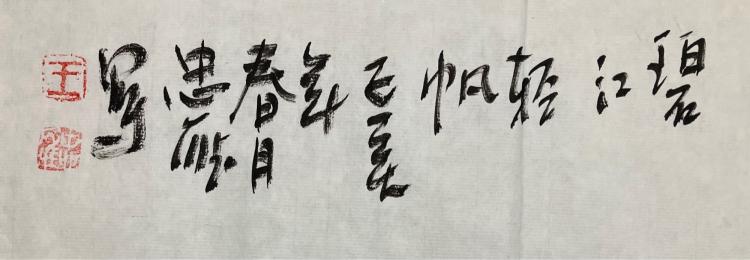 碧江轻帆
己亥
年
春月
忠
写
王